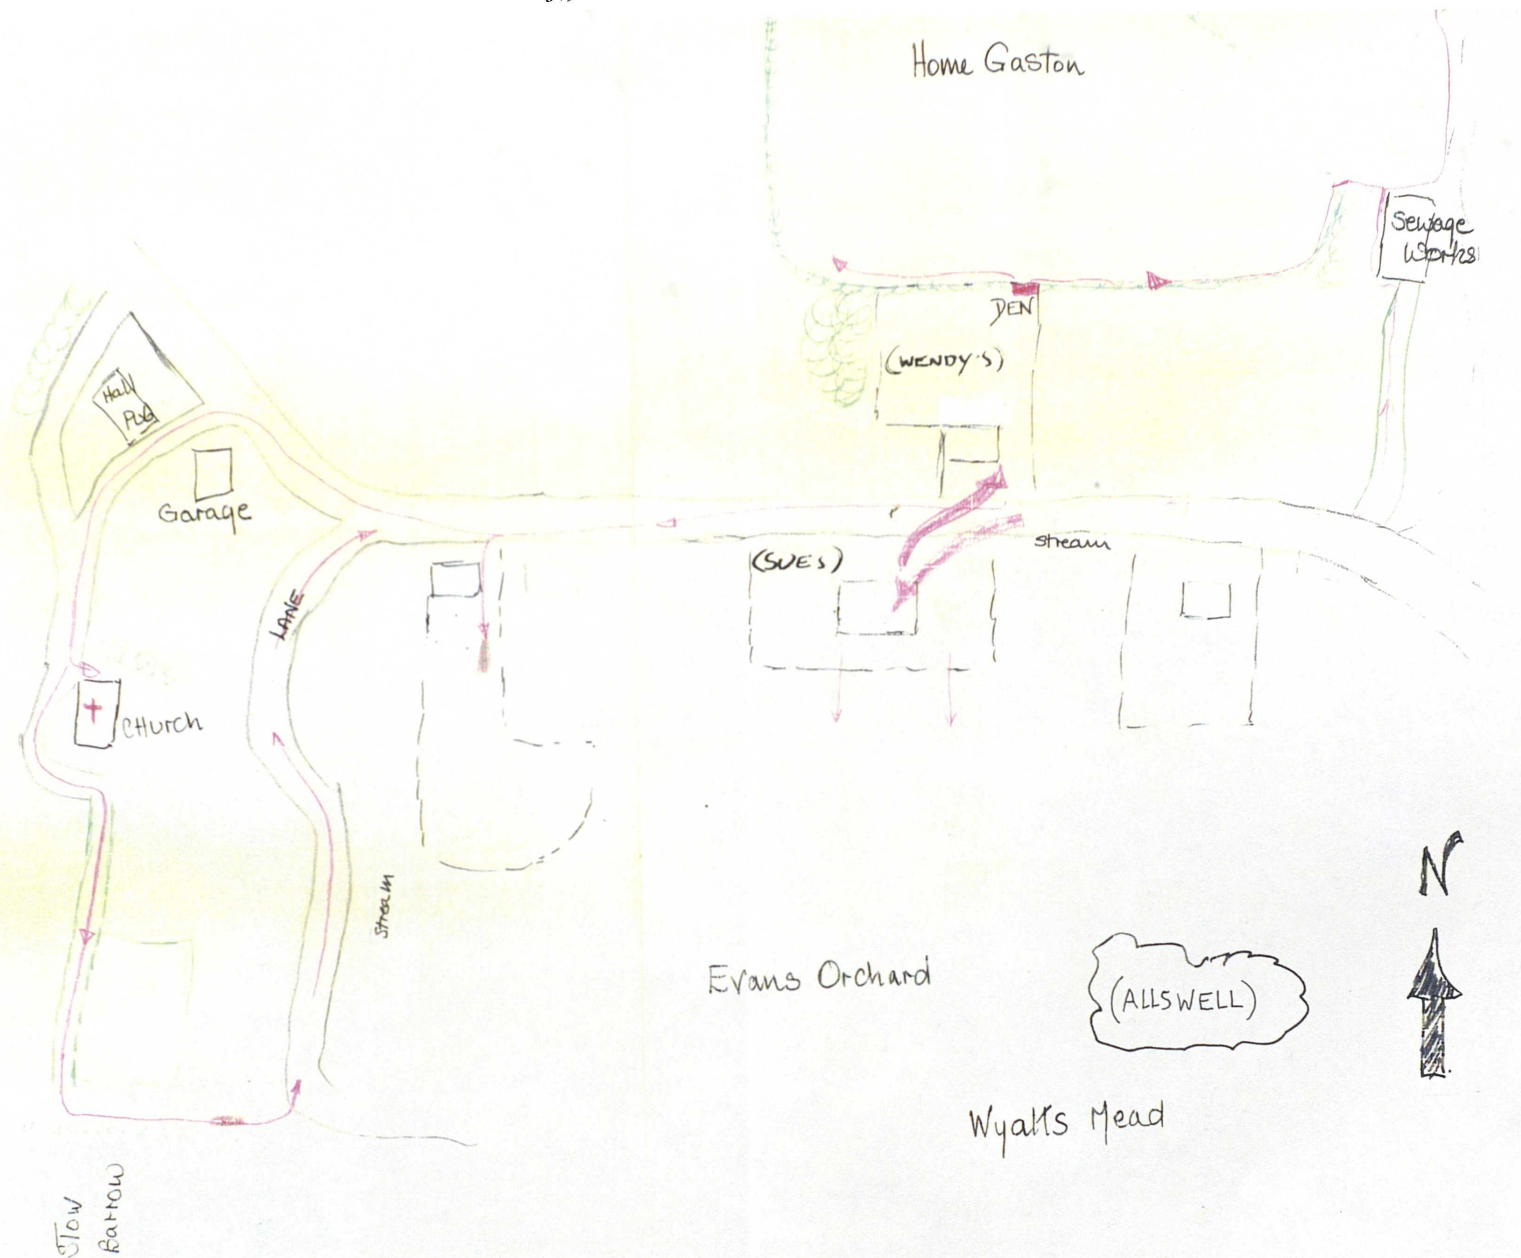 Home Gaston
Sewage
Works
DEN
(WENDY'S)
Hall
Garage
(SUES)
stream
LANE
CHurch
N
Stream
Evans Orchard
(ALLSWELL)
Wyatts Mead
Barrow